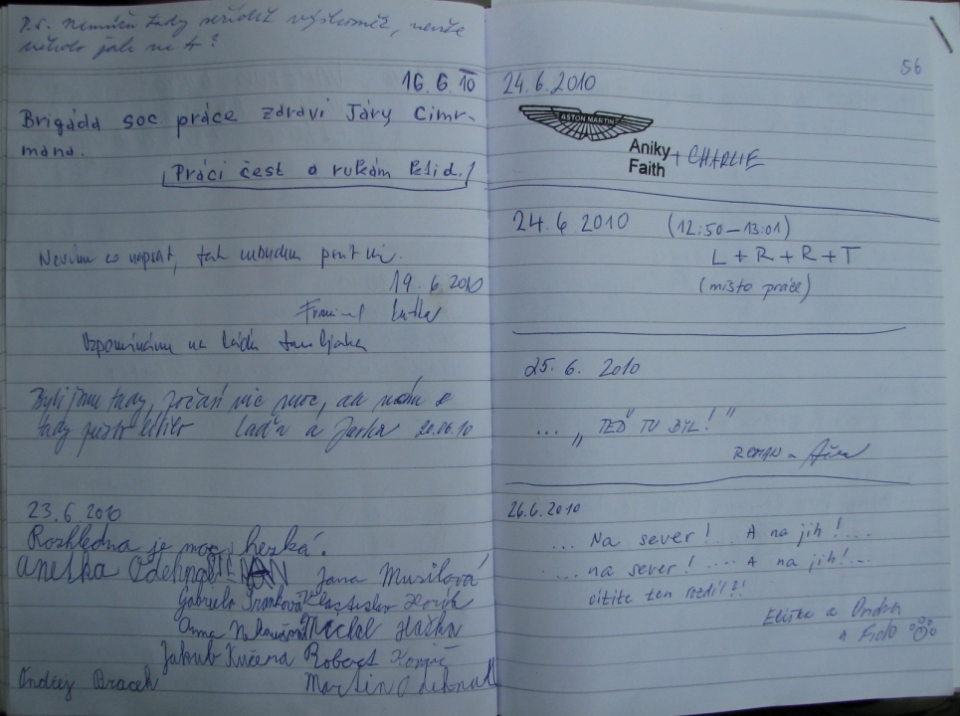 P.S. Neumím tady seřídit výškoměr, nevíte
někdo jak na to?
16.6.10
Brigáda soc práce zdraví Járy Cimr-
mana.
Práci čest a rukám klid!
Nevím co napsat, tak nebudu psát nic.
19.6.2010
Vzpomínáme na
Byli jsme tady, počasí nic moc, ale
tady Laďa a Jarka 20.06.10
23.6.2010
Rozhledna je moc hezká.
Anetka Odehnal Jana Musilová
Gabriela
Anna Michal Haška
Jakub Kučera Robert
Ondřej Bracek Martin Odehnal
56
24.6.2010
ASTON MARTIN
Aniky + CHARLIE
Faith
24.6.2010 (12:50–13:01)
L + R + R + T
(místo práce)
25.6.2010
... „TEĎ TU BYL!"
ROMAN a
26.6.2010
... Na sever! .. A na jih! ...
... na sever! .... A na jih! ...
cítíte ten rozdíl?!
Eliška a Ondra
a Fido